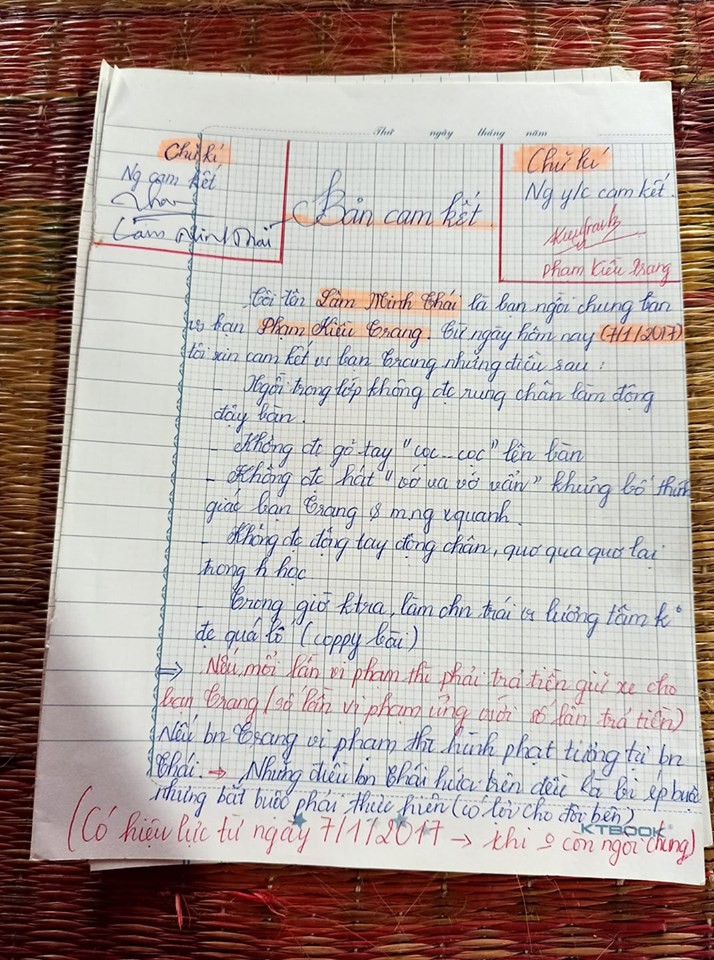 Thứ ngày tháng năm
Chữ kí
Ng cam kết
Thai
Lâm Minh Thái
Bản cam kết
Chữ kí
Ng y/c cam kết.
Kieutrang
Phạm Kiều Trang
Tôi tên Lâm Minh Thái là bạn ngồi chung bàn
vs bạn Phạm Kiều Trang. Từ ngày hôm nay (7/1/2017)
tôi xin cam kết vs bạn Trang những điều sau:
- Ngồi trong lớp không đc rung chân làm động
đậy bàn.
- Không đc gõ tay "cọc...cọc" lên bàn
- Không đc hát "vớ va vớ vẩn" khủng bố thính
giác bạn Trang & m.ng xquanh.
- Không đc động tay động chân, quơ qua quơ lại
trong h học
- Trong giờ ktra, làm chn trái vs lương tâm k°
đc quá lố (coppy bài)
⇒ Nếu, mỗi lần vi phạm thì phải trả tiền giữ xe cho
bạn Trang (số lần vi phạm ứng với số lần trả tiền)
Nếu bn Trang vi phạm thì hình phạt tương tự bn
Thái. → Những điều bn Thái hứa trên đều là bị ép buộc
nhưng bắt buộc phải thực hiện (có lời cho đôi bên)
KTBOOK
(Có hiệu lực từ ngày 7/1/2017 → khi còn ngồi chung)